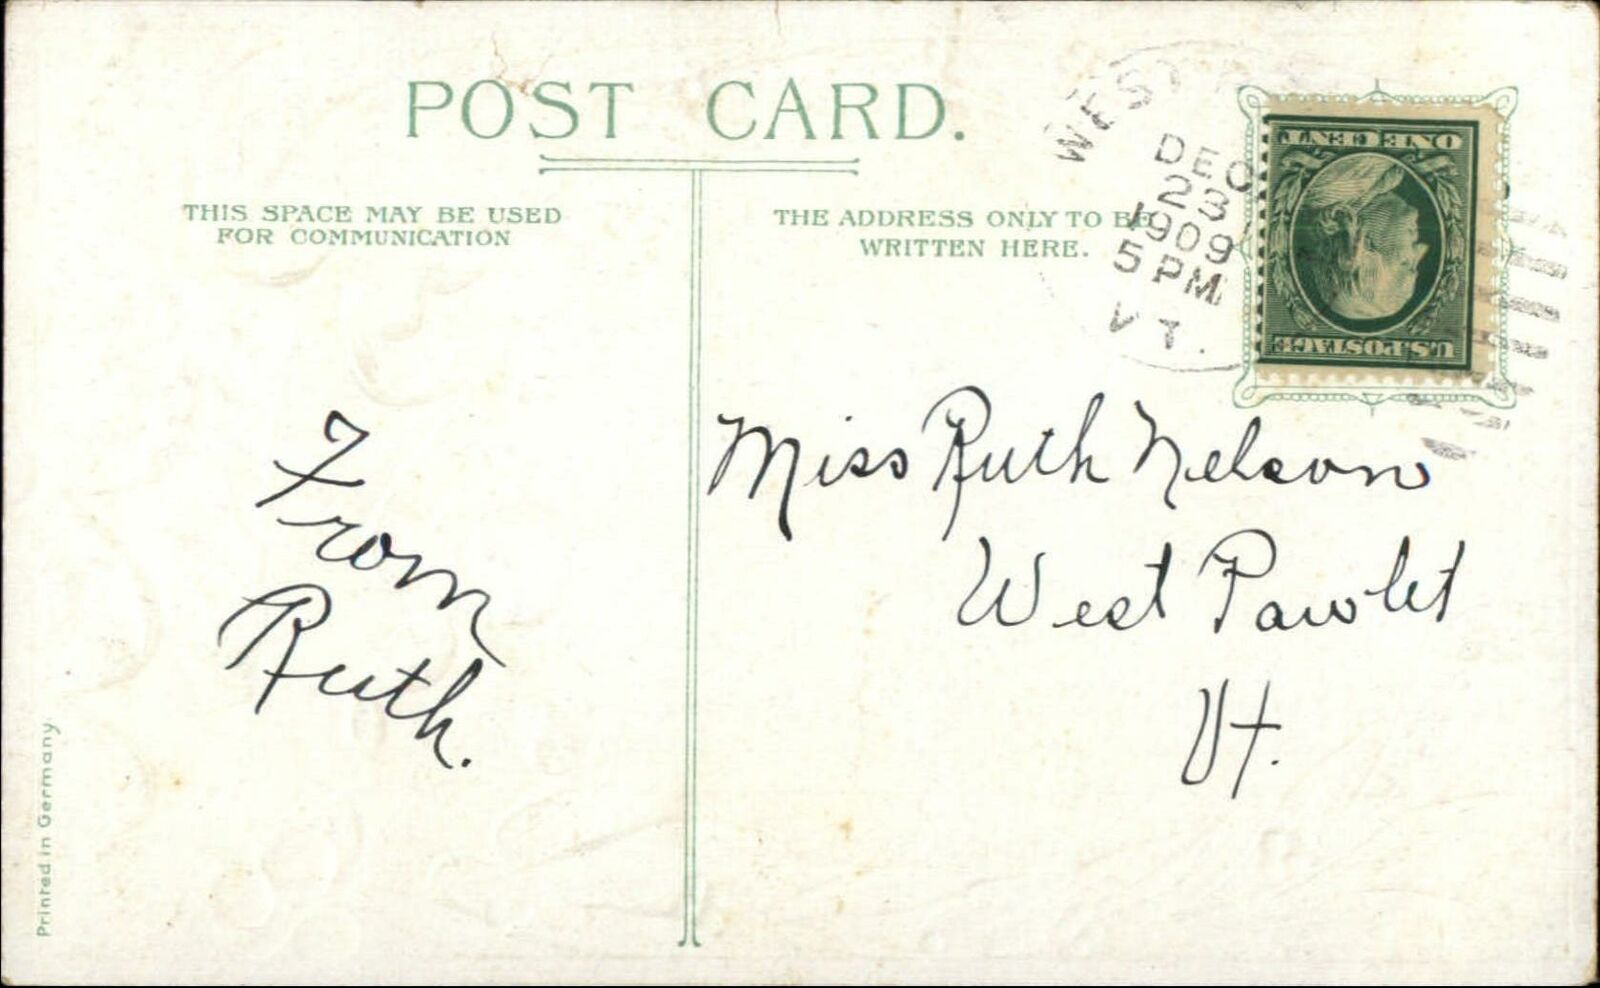 POST CARD.
THIS SPACE MAY BE USED
FOR COMMUNICATION
THE ADDRESS ONLY TO BE
WRITTEN HERE.
WEST
DEC
23
1909
5 PM
VT.
ONE CENT
U.S. POSTAGE
From
Ruth.
Miss Ruth Nelson
West Pawlet
Vt.
Printed in Germany